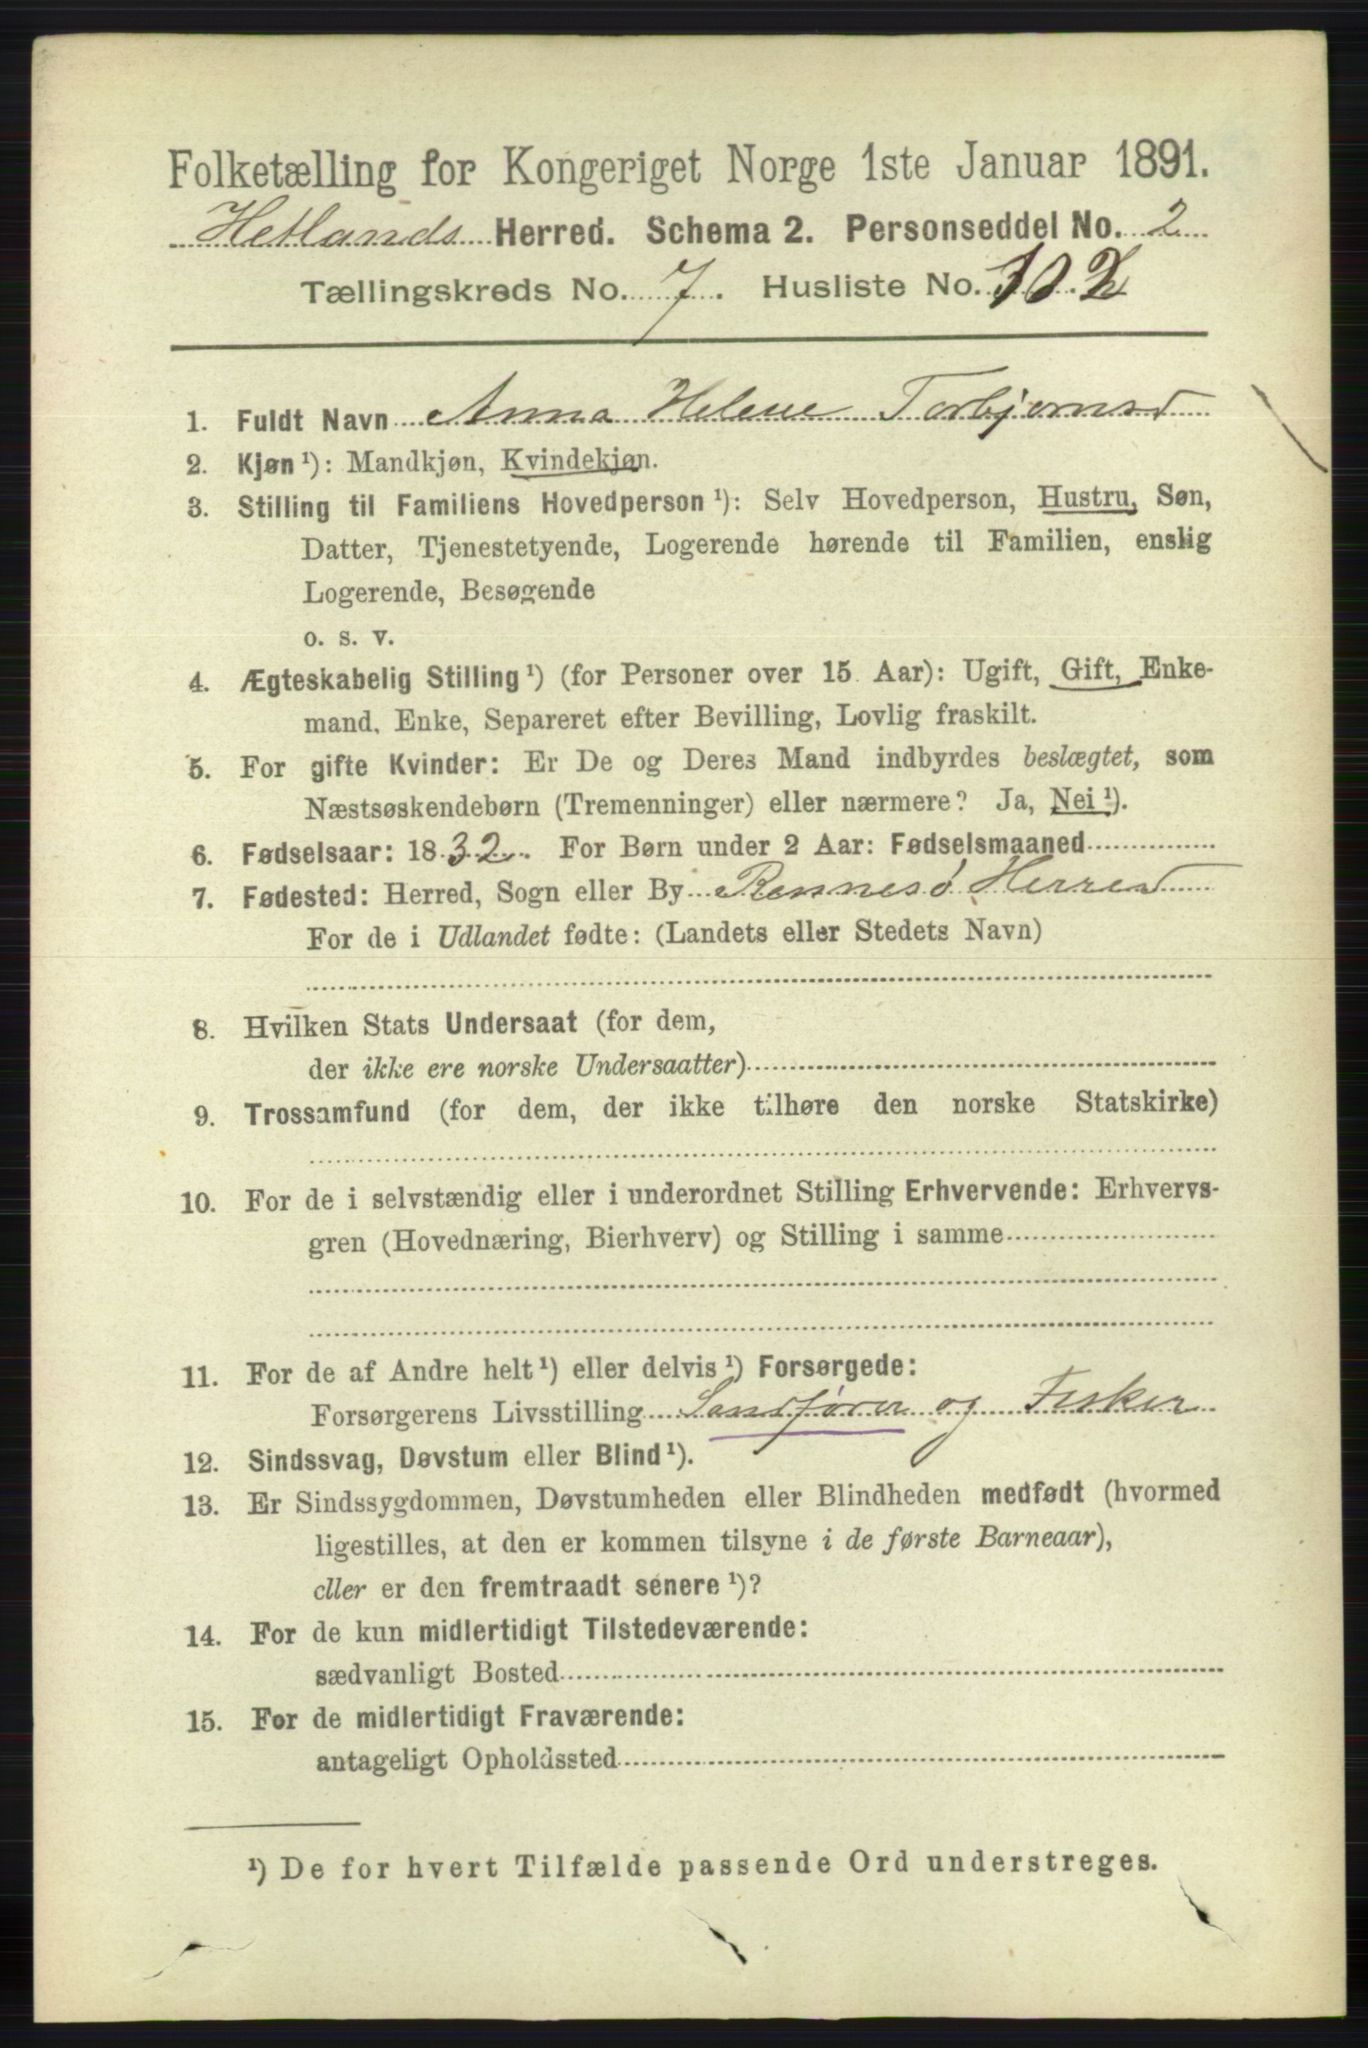 Folketælling for Kongeriget Norge 1ste Januar 1891.
Hetlands Herred. Schema 2. Personseddel No. 2
Tællingskreds No. 7. Husliste No. 102
1. Fuldt Navn Anna Helene Torbjørnsd
2. Kjøn¹): Mandkjøn, Kvindekjøn.
3. Stilling til Familiens Hovedperson¹): Selv Hovedperson, Hustru, Søn,
Datter, Tjenestetyende, Logerende hørende til Familien, enslig
Logerende, Besøgende
o. s. v.
4. Ægteskabelig Stilling¹) (for Personer over 15 Aar): Ugift, Gift, Enke-
mand, Enke, Separeret efter Bevilling, Lovlig fraskilt.
5. For gifte Kvinder: Er De og Deres Mand indbyrdes beslægtet, som
Næstsøskendebørn (Tremenninger) eller nærmere? Ja, Nei¹).
6. Fødselsaar: 1832. For Børn under 2 Aar: Fødselsmaaned
7. Fødested: Herred, Sogn eller By Rennesø Herred
For de i Udlandet fødte: (Landets eller Stedets Navn)
8. Hvilken Stats Undersaat (for dem,
der ikke ere norske Undersaatter)
9. Trossamfund (for dem, der ikke tilhøre den norske Statskirke)
10. For de i selvstændig eller i underordnet Stilling Erhvervende: Erhvervs-
gren (Hovednæring, Bierhverv) og Stilling i samme
11. For de af Andre helt¹) eller delvis¹) Forsørgede:
Forsørgerens Livsstilling Sandfører og Fisker
12. Sindssvag, Døvstum eller Blind¹).
13. Er Sindssygdommen, Døvstumheden eller Blindheden medfødt (hvormed
ligestilles, at den er kommen tilsyne i de første Barneaar),
eller er den fremtraadt senere¹)?
14. For de kun midlertidigt Tilstedeværende:
sædvanligt Bosted
15. For de midlertidigt Fraværende:
antageligt Opholdssted
¹) De for hvert Tilfælde passende Ord understreges.